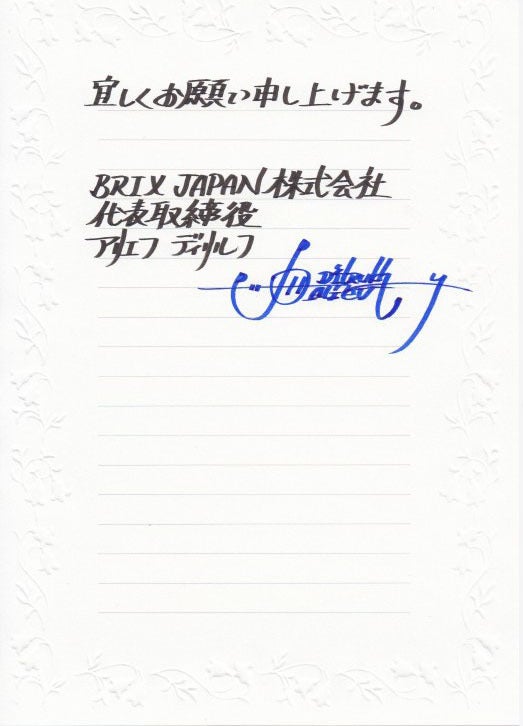 宜しくお願い申し上げます。
BRIX JAPAN株式会社
代表取締役
アリエフ ディルルフ